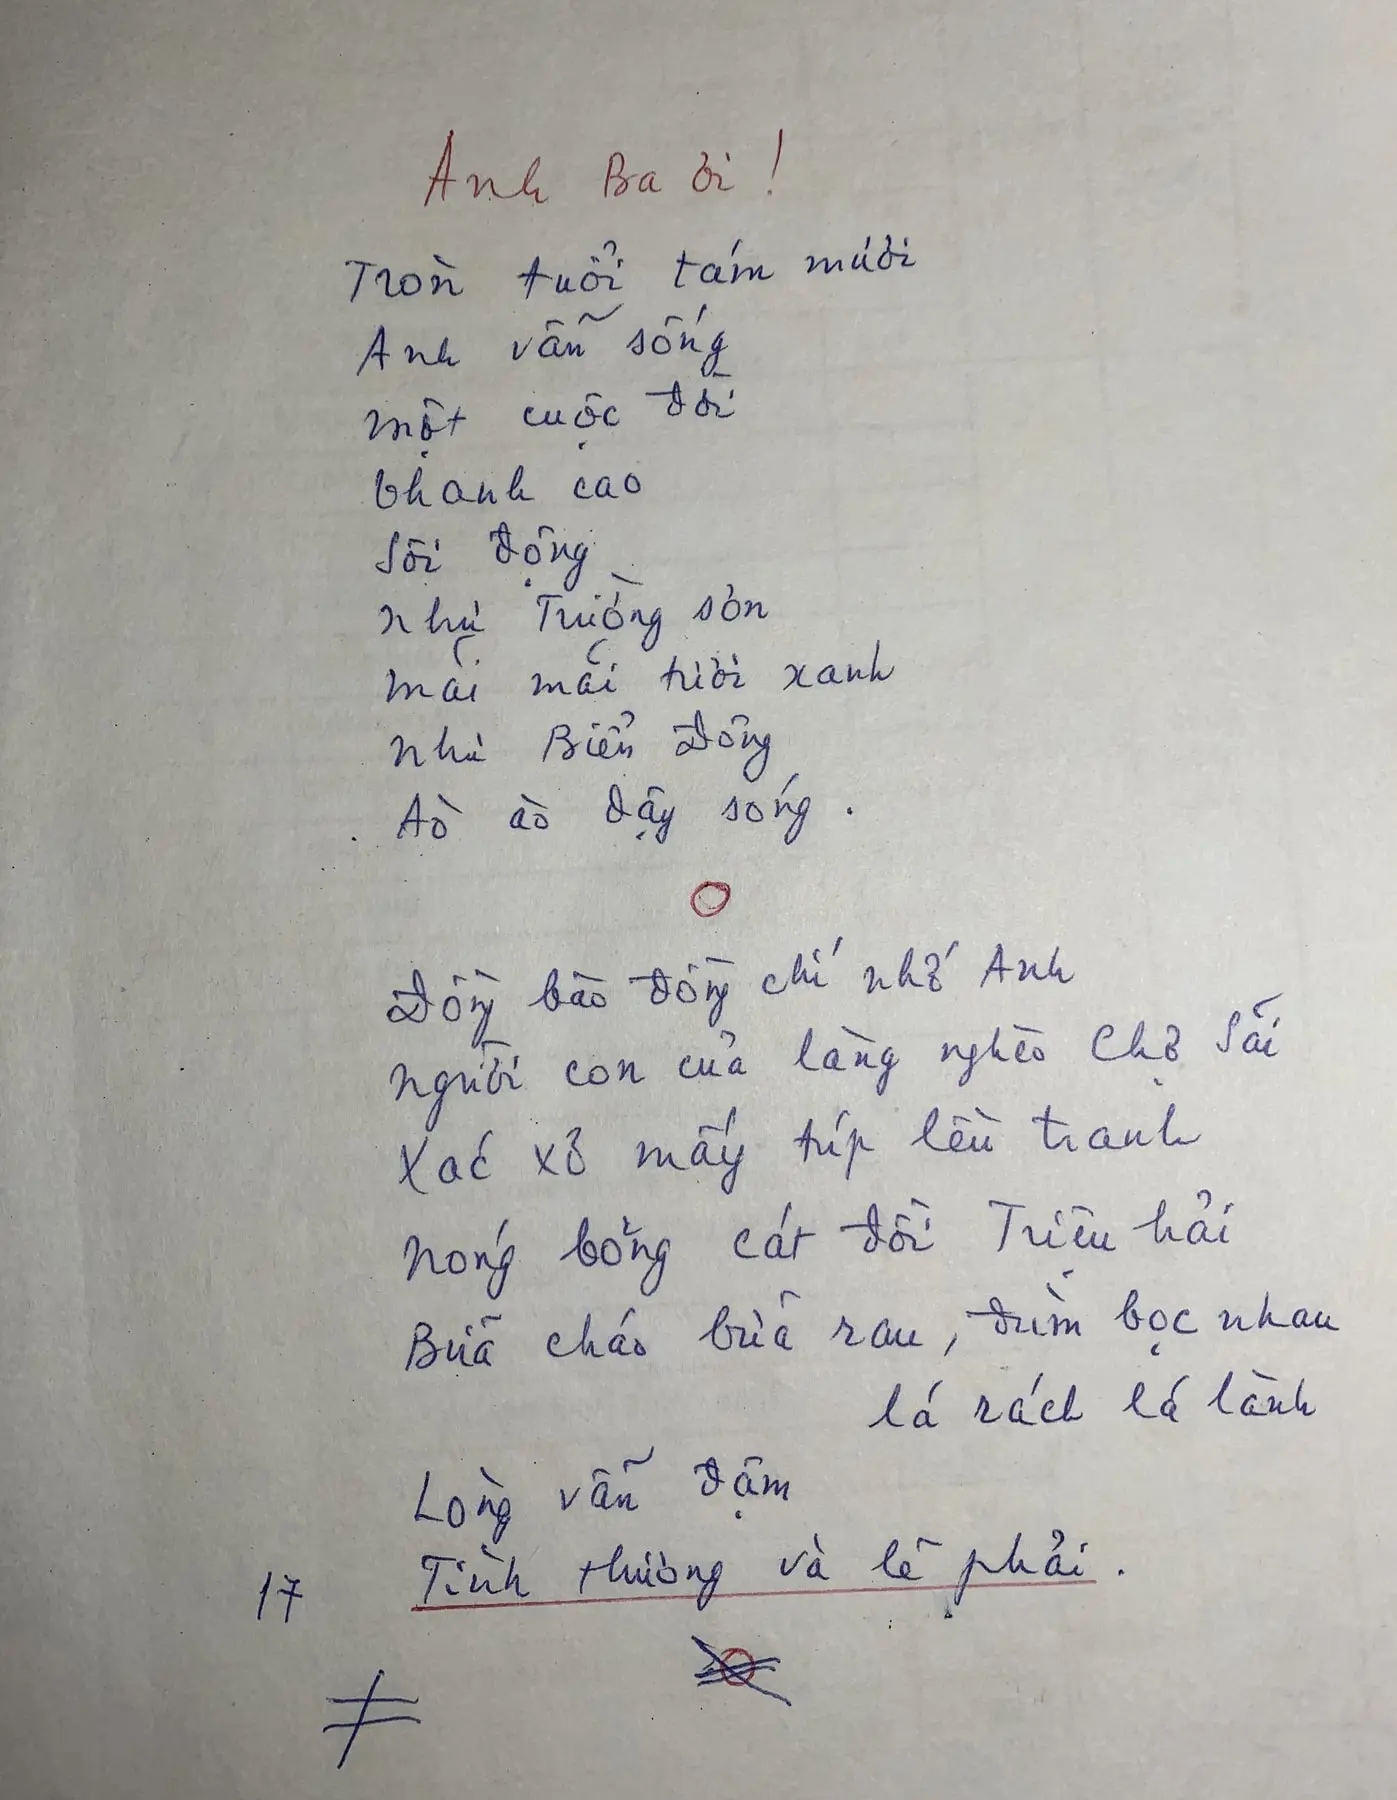 Anh Ba ơi!
Tròn tuổi tám mươi
Anh vẫn sống
một cuộc đời
thanh cao
Sôi động
như Trường sơn
mãi mãi tươi xanh
như Biển Đông
Aò ào dậy sóng.
Đồng bào đồng chí nhớ Anh
người con của làng nghèo Chợ Sãi
Xác xơ mấy túp lều tranh
nóng bỏng cát đồi Triệu hải
Bữa cháo bữa rau, đùm bọc nhau
lá rách lá lành
Lòng vẫn đậm
17 Tình thương và lẽ phải.